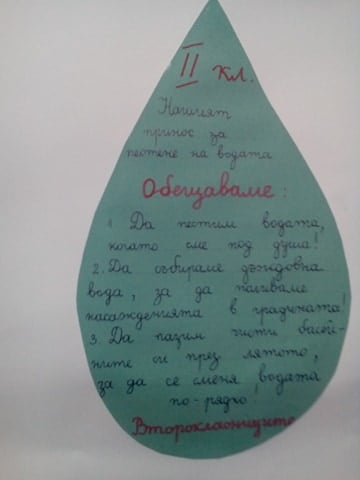 II кл.
Нашият
принос за
пестене на водата
Обещаваме:
1. Да пестим водата,
когато сме под душа!
2. Да събираме дъждовна
вода, за да поливаме
насажденията в градината!
3. Да пазим чисти басей-
ните си през лятото,
за да се сменя водата
по-рядко!
Второкласниците